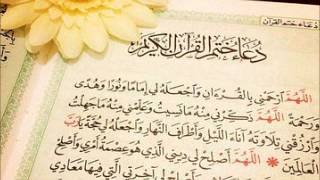 دُعَاء خَتْمِ القُرْآن
دُعَاءُ خَتْمِ القُرْآنِ الكَرِيمِ
اللَّهُمَّ ارْحَمْنِي بِالقُرْءَانِ وَاجْعَلهُ لِي إِمَامًا وَنُورًا وَهُدًى
وَرَحْمَةً اللَّهُمَّ ذَكِّرْنِي مِنْهُ مَانَسِيتُ وَعَلِّمْنِي مِنْهُ مَاجَهِلْتُ
وَارْزُقْنِي تِلَاوَتَهُ آنَاءَ اللَّيْلِ وَأَطْرَافَ النَّهَارِ وَاجْعَلْهُ لِي حُجَّةً يَارَبَّ
العَالَمِينَ اللَّهُمَّ أَصْلِحْ لِي دِينِي الَّذِي هُوَعِصْمَةُ أَمْرِي وَأَصْلِحْ
آخِرَتِي الَّتِي فِيهَا مَعَادِي